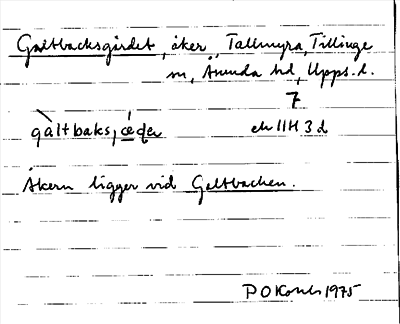 Galtbacksgärdet, åker, Tallmyra, Tillinge
sn, Åsunda hd, Upps. l.
7
gàltbaks,
ek 11H 3d
Åkern ligger vid Galtbacken.
1975